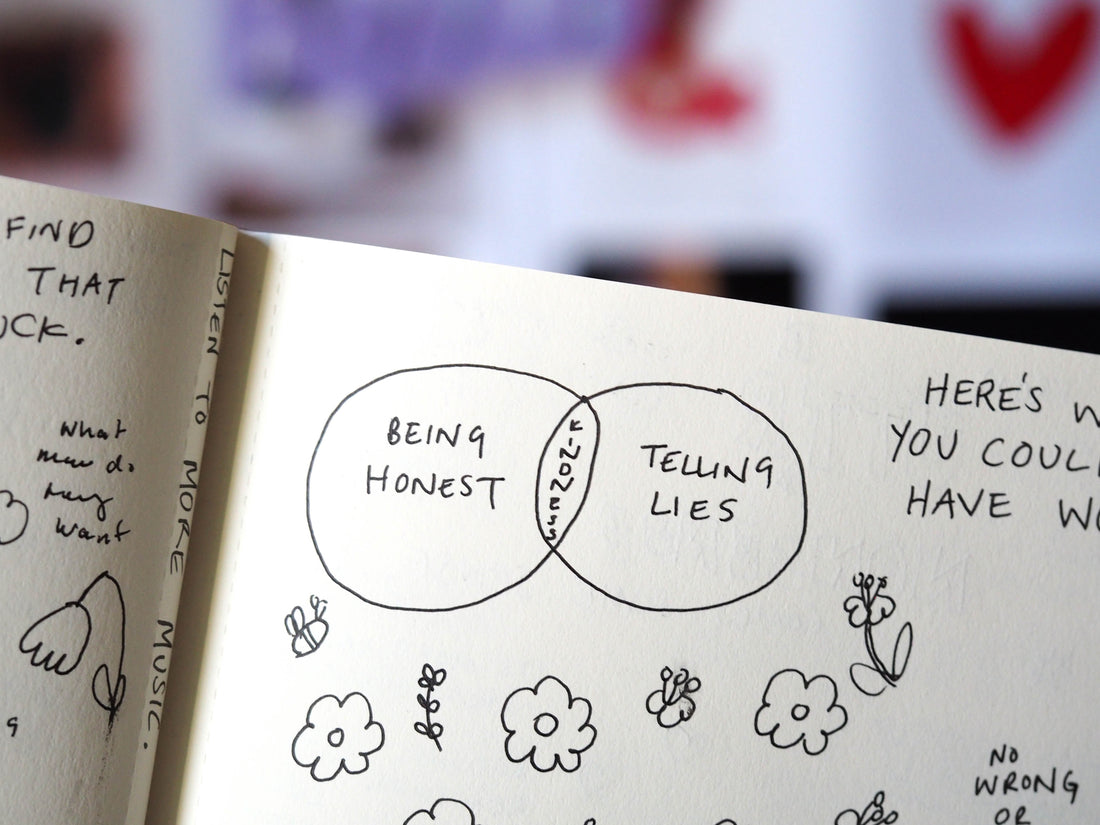 FIND
THAT
UCK.
What
men do
they
want
LISTEN TO MORE MUSIC.
BEING
HONEST
KINDNESS
TELLING
LIES
HERE'S W
YOU COUL
HAVE WO
NO
WRONG
OR